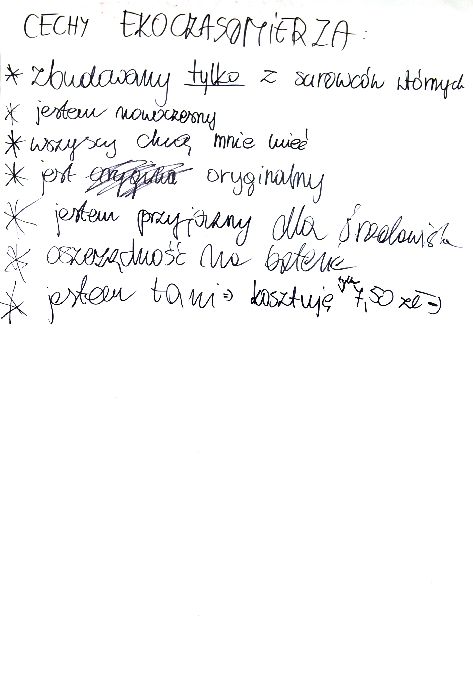 CECHY EKOCZASOMIERZA:
* zbudowany tylko z surowców wtórnych
* jestem nowoczesny
* wszyscy chcą mnie mieć
* jest oryginalny
* jestem przyjazny dla środowisk
* oszczędność na baterie
* jestem tani =) kosztuję tylko 7,50 zł =)